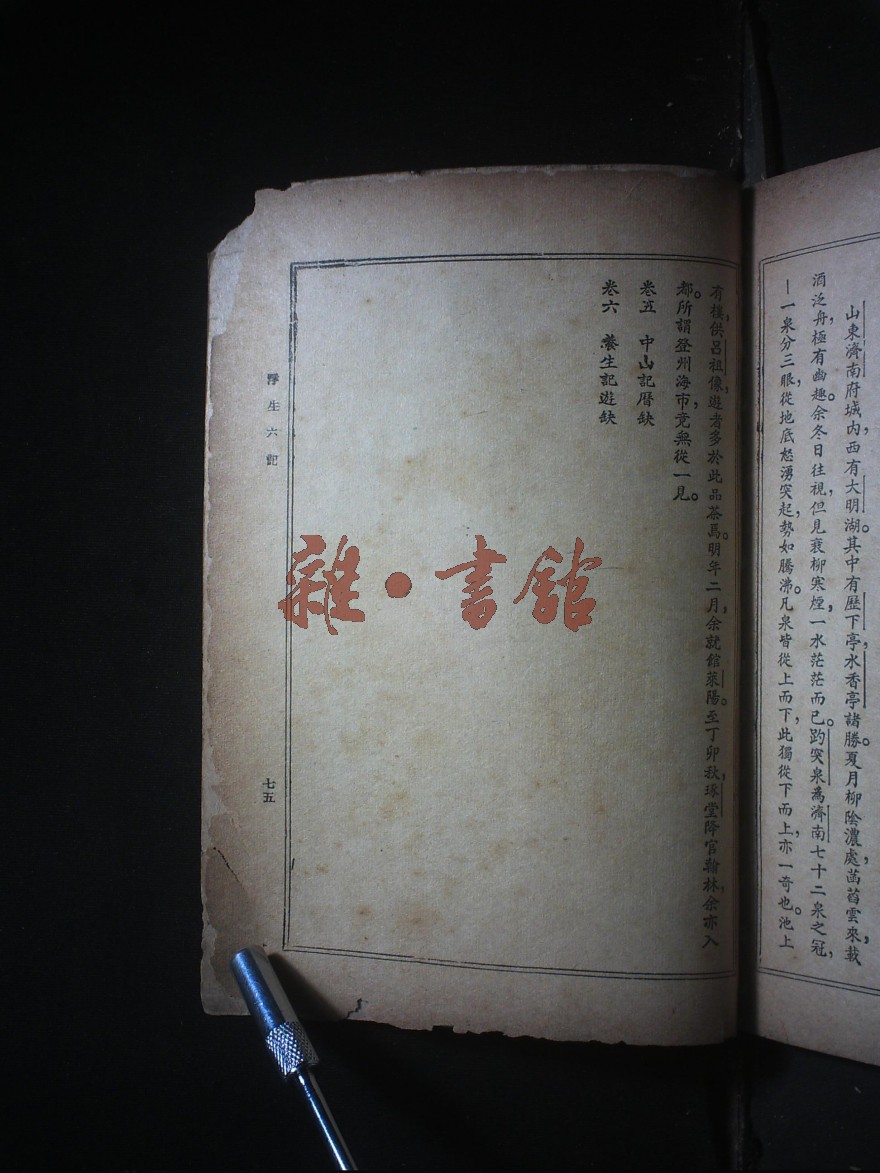 山東濟南府城內，西有大明湖。其中有歷下亭，水香亭諸勝。夏月柳陰濃處，菡萏雲來，載
酒泛舟，極有幽趣。余冬日往視，但見衰柳寒煙，一水茫茫而已。趵突泉為濟南七十二泉之冠，
一泉分三眼，從地底怒湧突起，勢如騰沸。凡泉皆從上而下，此獨從下而上，亦一奇也。池上
有樓，供呂祖像，遊者多於此品茶焉。明年二月，余就館萊陽。至丁卯秋，琢堂降官翰林，余亦入
都。所謂登州海市，竟無從一見。
卷五　中山記曆缺
卷六　養生記遊缺
浮生六記
七五
雜·書館